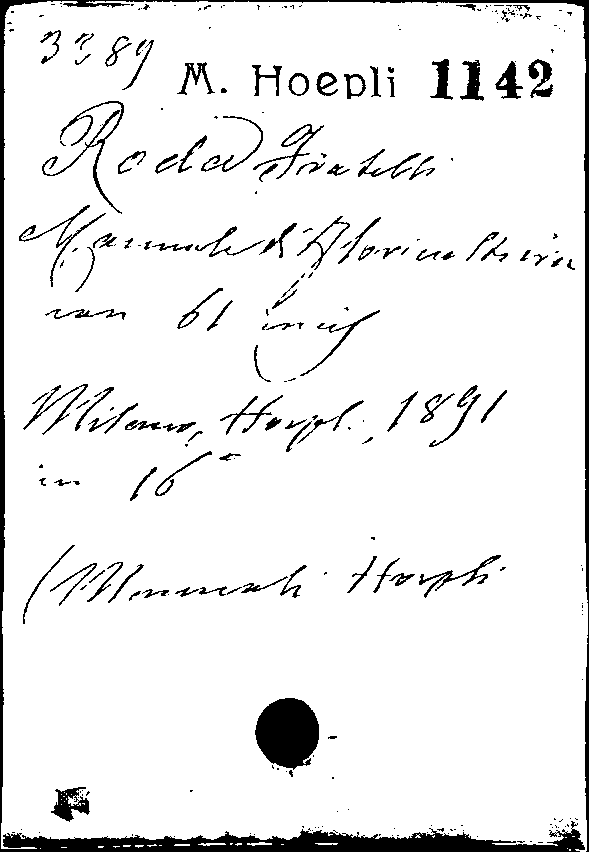 3389
M. Hoepli 1142
Roda Fratelli
Manuale di Floricultura
con 61 incis
Milano, Hoepl., 1891
in 16°
(Manuali Hoepli